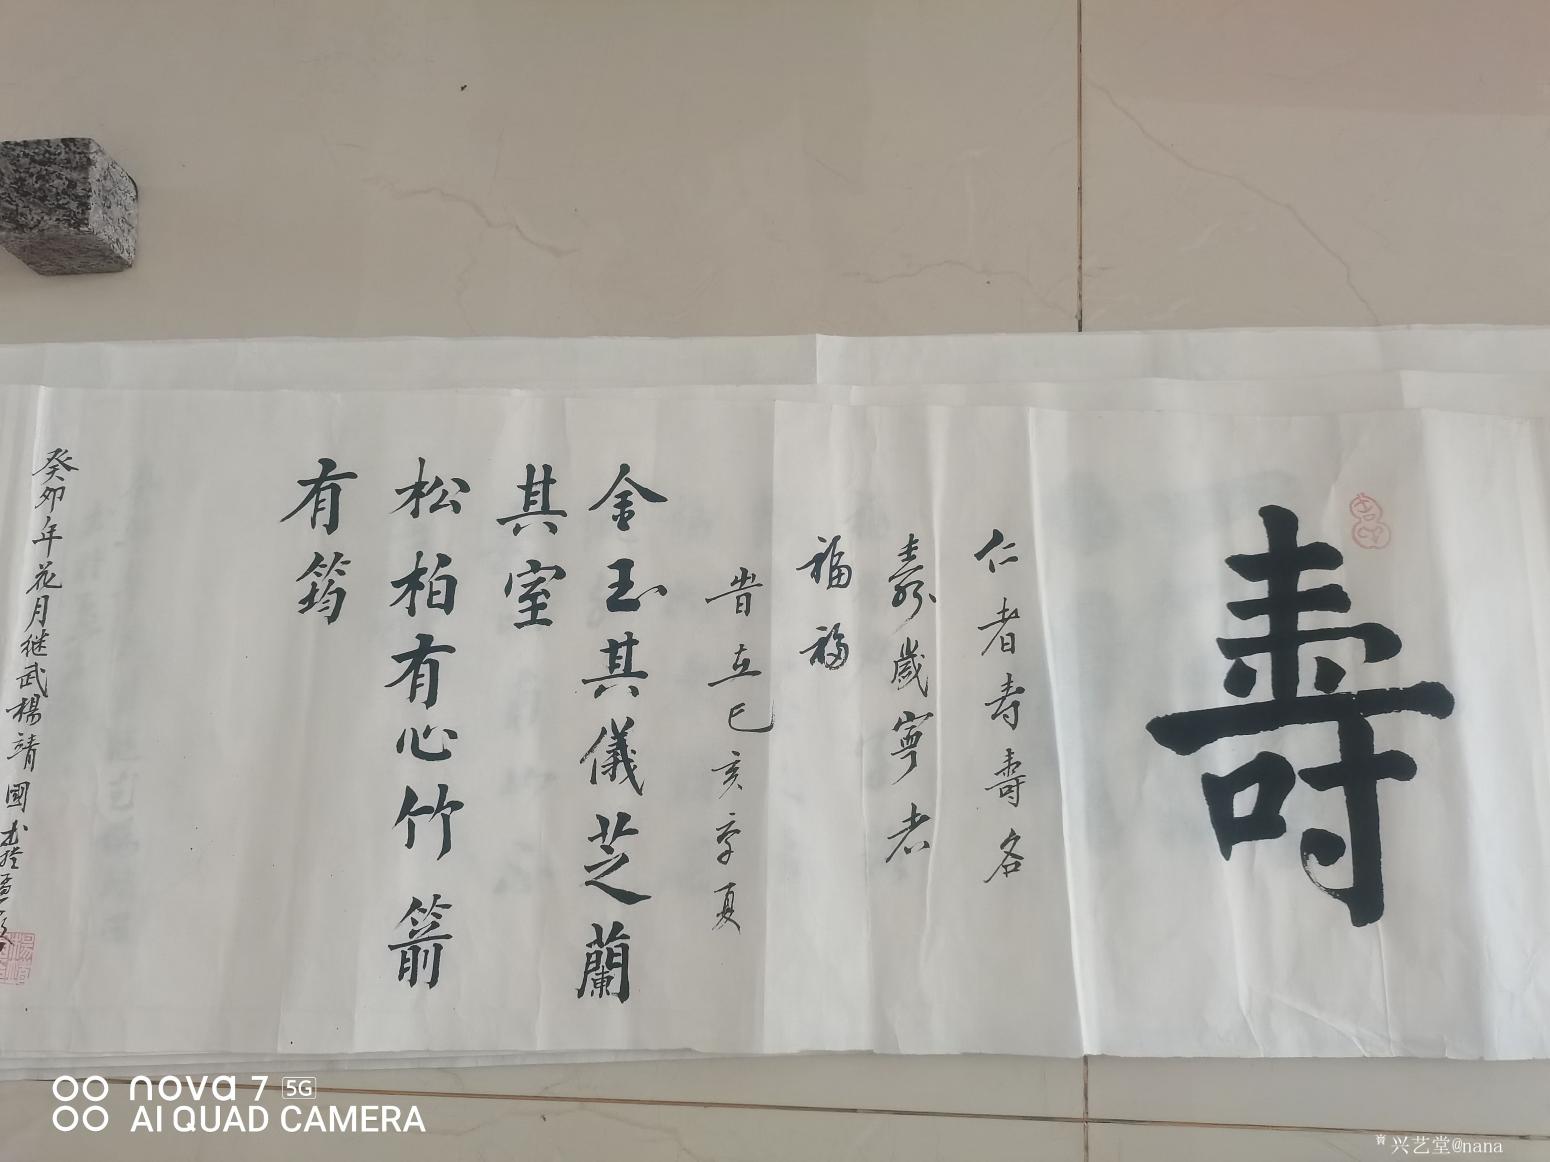 壽
仁者寿壽名
壽歲寧者
福福
昔在己亥孟夏
金玉其儀芝蘭
其室
松柏有心竹箭
有筠
癸卯年花月继武楊靖國书
nova 7 5G
AI QUAD CAMERA
兴艺堂@nana